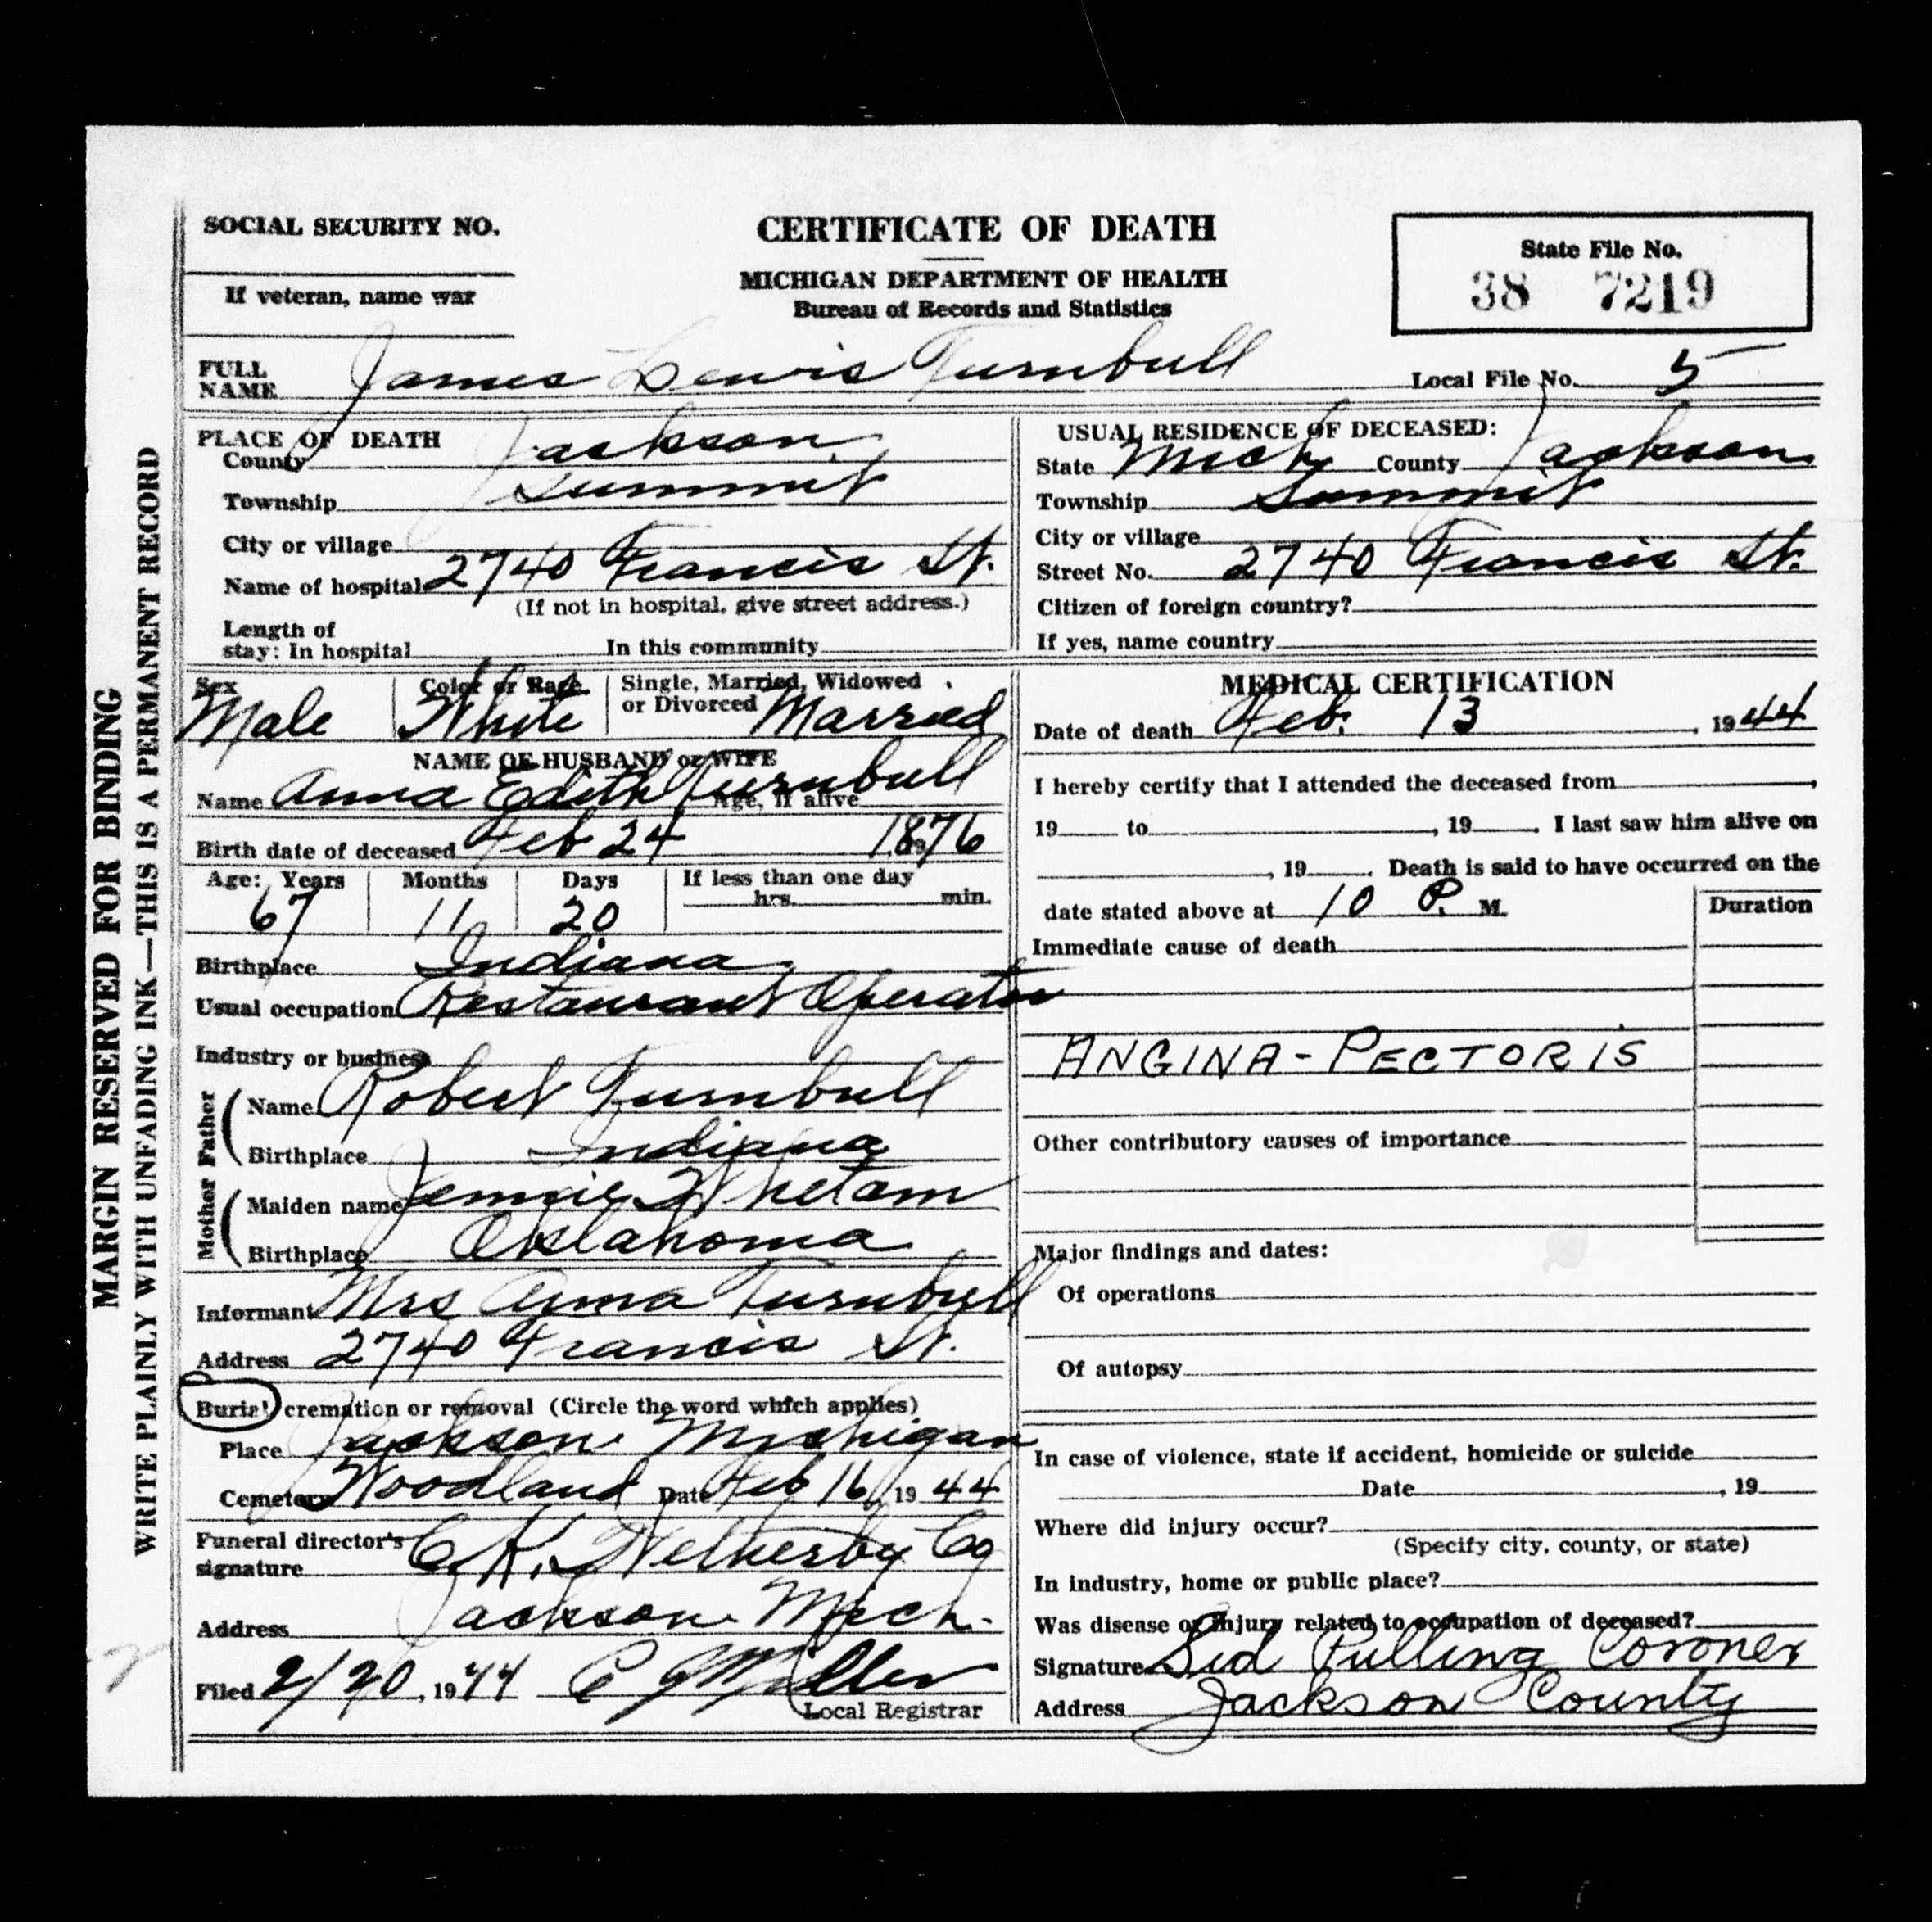 SOCIAL SECURITY NO.
If veteran, name war
CERTIFICATE OF DEATH
MICHIGAN DEPARTMENT OF HEALTH
Bureau of Records and Statistics
State File No.
38 7219
FULL NAME James Lewis Turnbull Local File No. 5
PLACE OF DEATH
County Jackson
Township Summit
City or village
Name of hospital 2740 Francis St.
(If not in hospital, give street address.)
Length of
stay: In hospital In this community
USUAL RESIDENCE OF DECEASED:
State Mich County Jackson
Township Summit
City or village
Street No. 2740 Francis St.
Citizen of foreign country?
If yes, name country
Sex Male
Color or Race White
Single, Married, Widowed
or Divorced Married
NAME OF HUSBAND or WIFE
Name Anna Edith Turnbull Age, if alive
Birth date of deceased Feb 24 1876
Age: Years Months Days If less than one day
67 11 20 hrs. min.
Birthplace Indiana
Usual occupation Restaurant Operator
Industry or business
Father
Name Robert Turnbull
Birthplace Indiana
Mother
Maiden name Jennie Whetam
Birthplace Oklahoma
Informant Mrs Anna Turnbull
Address 2740 Francis St.
Burial, cremation or removal (Circle the word which applies)
Place Jackson Michigan
Cemetery Woodland Date Feb 16, 1944
Funeral director's
signature C. K. Wetherby Co
Address Jackson Mich.
Filed 2/20, 1944 C J Miller
Local Registrar
MEDICAL CERTIFICATION
Date of death Feb. 13, 1944
I hereby certify that I attended the deceased from ,
19 to , 19 . I last saw him alive on
, 19 . Death is said to have occurred on the
date stated above at 10 P. M.
Duration
Immediate cause of death
ANGINA-PECTORIS
Other contributory causes of importance
Major findings and dates:
Of operations
Of autopsy
In case of violence, state if accident, homicide or suicide
Date , 19
Where did injury occur?
(Specify city, county, or state)
In industry, home or public place?
Was disease or injury related to occupation of deceased?
Signature Sid Pulling Coroner
Address Jackson County
MARGIN RESERVED FOR BINDING
WRITE PLAINLY WITH UNFADING INK—THIS IS A PERMANENT RECORD